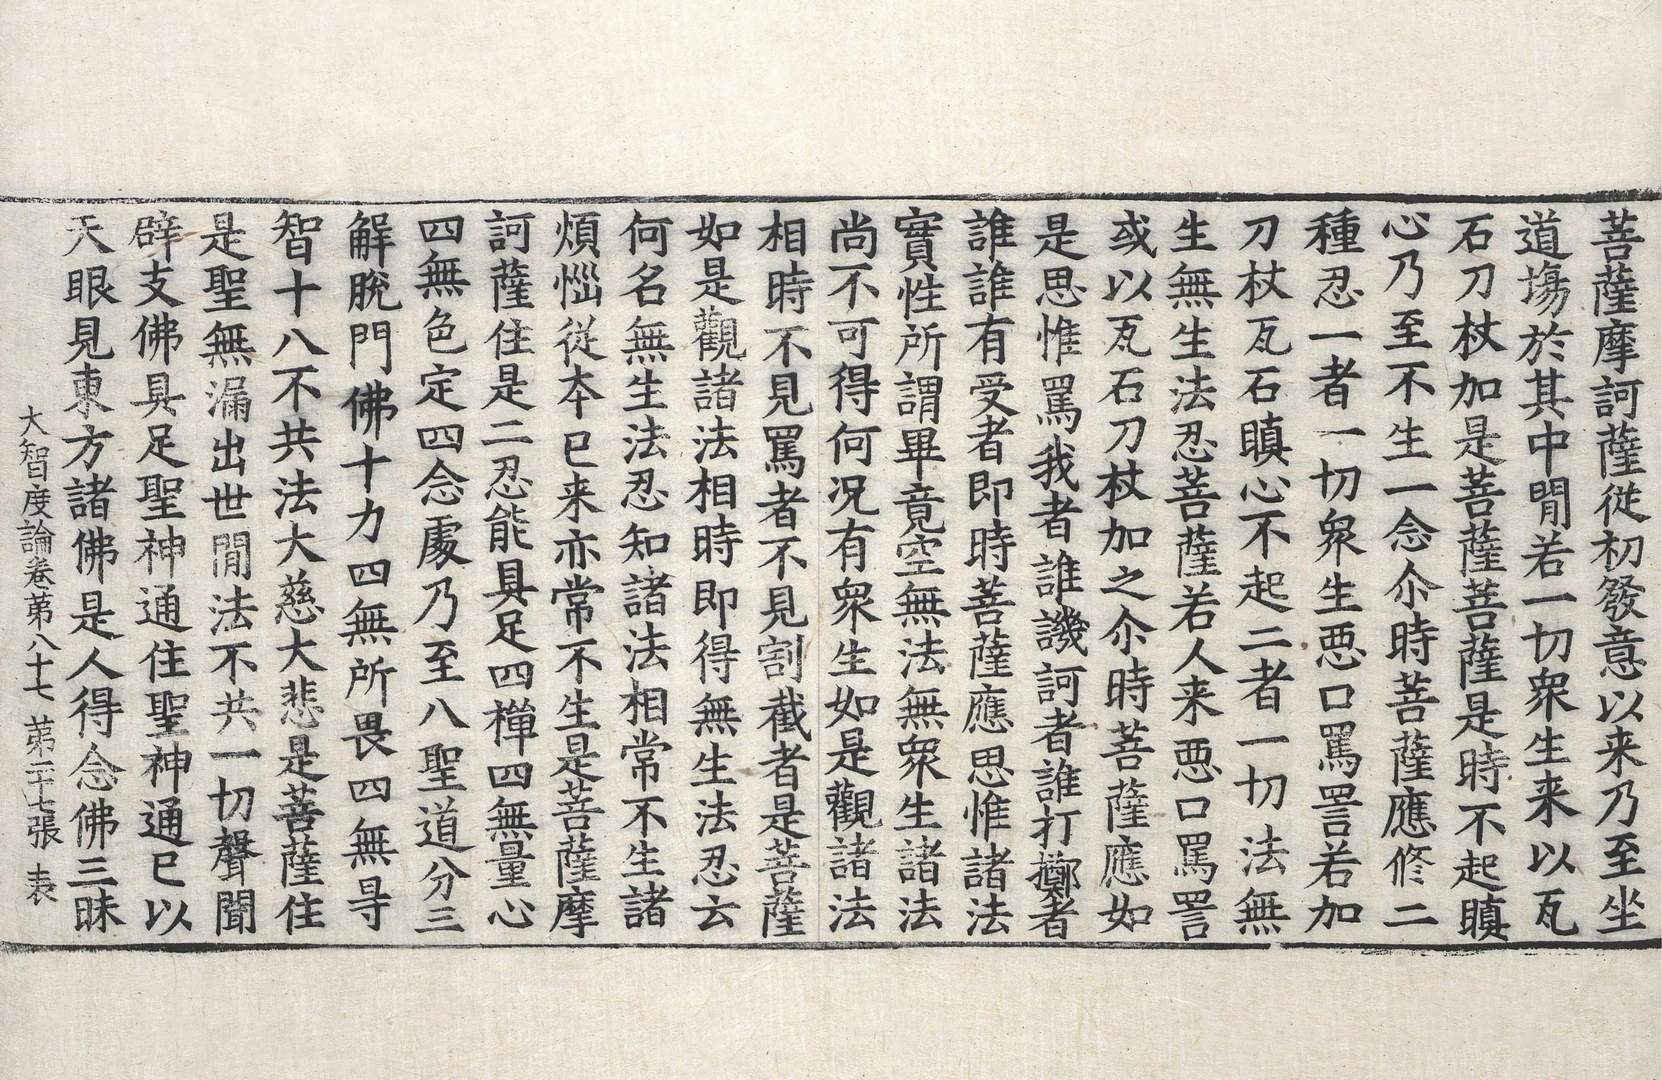 菩薩摩訶薩從初發意以来乃至坐
道塲於其中閒若一切衆生来以瓦
石刀杖加是菩薩菩薩是時不起瞋
心乃至不生一念尒時菩薩應修二
種忍一者一切衆生惡口罵詈若加
刀杖瓦石瞋心不起二者一切法無
生無生法忍菩薩若人来惡口罵詈
或以瓦石刀杖加之尒時菩薩應如
是思惟罵我者誰譏訶者誰打擲者
誰誰有受者即時菩薩應思惟諸法
實性所謂畢竟空無法無衆生諸法
尚不可得何況有衆生如是觀諸法
相時不見罵者不見割截者是菩薩
如是觀諸法相時即得無生法忍云
何名無生法忍知諸法相常不生諸
煩惱從本已来亦常不生是菩薩摩
訶薩住是二忍能具足四禪四無量心
四無色定四念處乃至八聖道分三
解脫門佛十力四無所畏四無㝵
智十八不共法大慈大悲是菩薩住
是聖無漏出世閒法不共一切聲聞
辟支佛具足聖神通住聖神通已以
天眼見東方諸佛是人得念佛三昧
大智度論卷第八十七 第二十七張 表